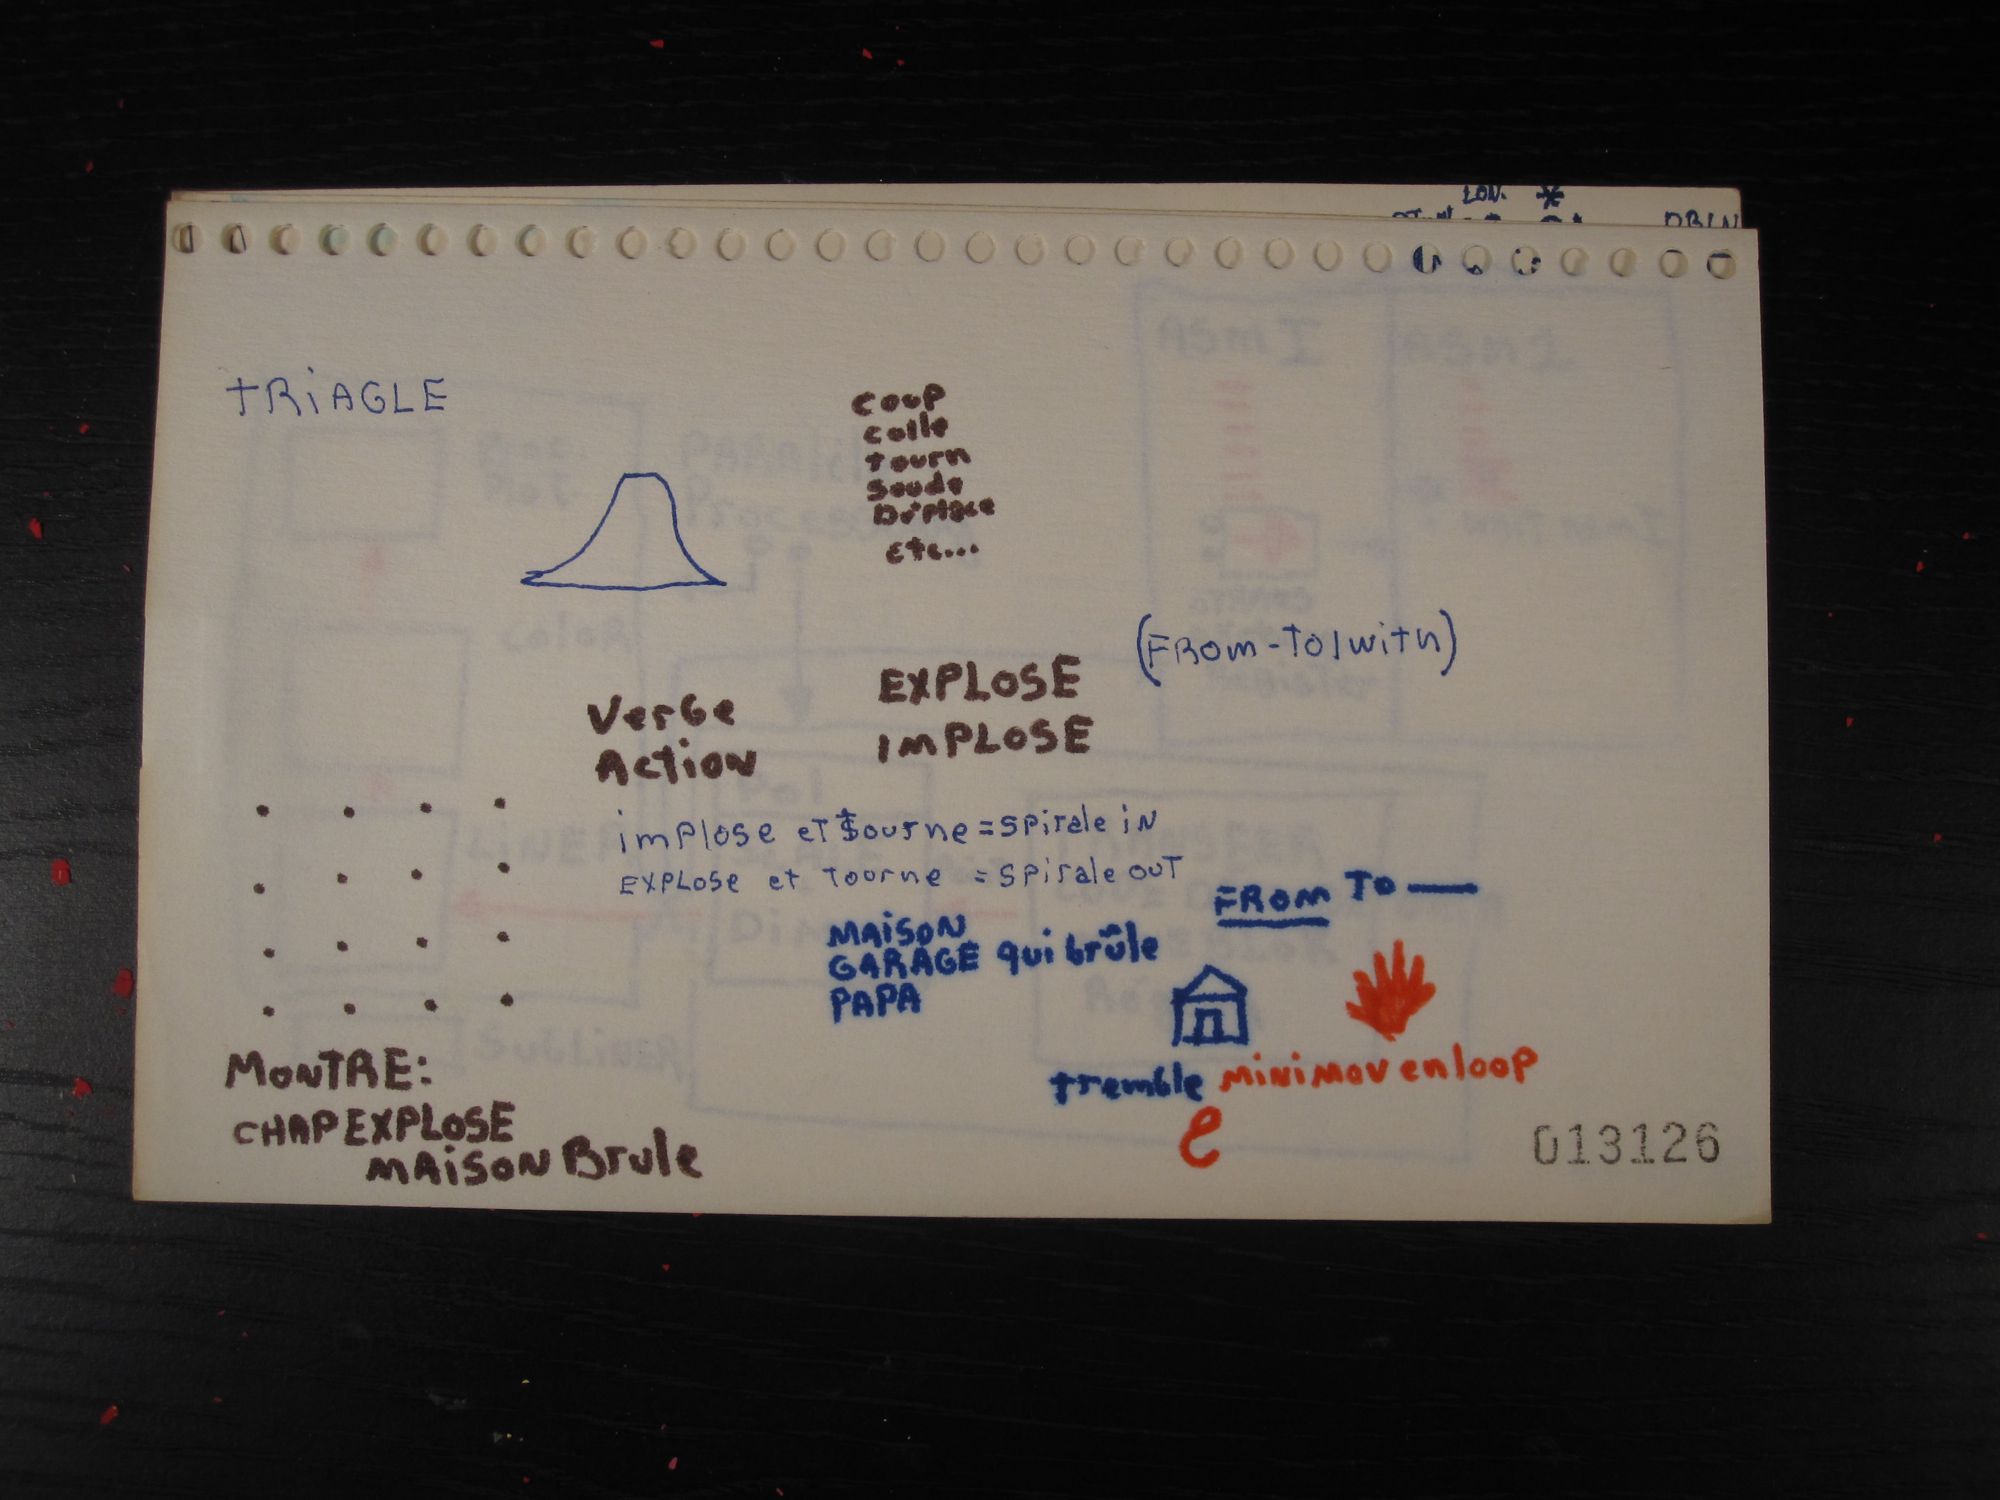 TRiAGLE
coup
colle
tourn
soude
Déplace
etc...
(FROM-TO/with)
EXPLOSE
IMPLOSE
VerGe
Action
implose eT tourne = spirale iN
EXPLOSE et Tourne = spirale ouT
FROM TO —
MAiSON
GARAGE qui brûle
PAPA
tremble minimov en loop
e
MONTRE:
CHAP EXPLOSE
MAiSON Brule
013126
LON. *